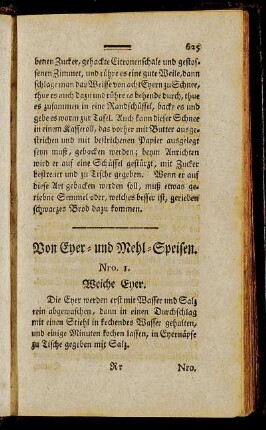 625
benen Zucker, gehackte Citronenschale und gestos-
senen Zimmet, und rühre es eine gute Weile, dann
schlage man das Weiße von acht Eyern zu Schnee,
thue es auch dazu und rühre es behende durch, thue
es zusammen in eine Randschüssel, backe es und
gebe es warm zur Tafel. Auch kann dieser Schnee
in einem Kasseroll, das vorher mit Butter ausge-
strichen und mit bestrichenen Papier ausgelegt
seyn muß, gebacken werden; beym Anrichten
wird er auf eine Schüssel gestürzt, mit Zucker
bestreuet und zu Tische gegeben. Wenn er auf
diese Art gebacken werden soll, muß etwas ge-
riebne Semmel oder, welches besser ist, gerieben
schwarzes Brod dazu kommen.
Von Eyer- und Mehl-Speisen.
Nro. 1.
Weiche Eyer.
Die Eyer werden erst mit Wasser und Salz
rein abgewaschen, dann in einen Durchschlag
mit einen Stiehl in kochendes Wasser gehalten,
und einige Minuten kochen lassen, in Eyernäpfe
zu Tische gegeben mit Salz.
Rr Nro.